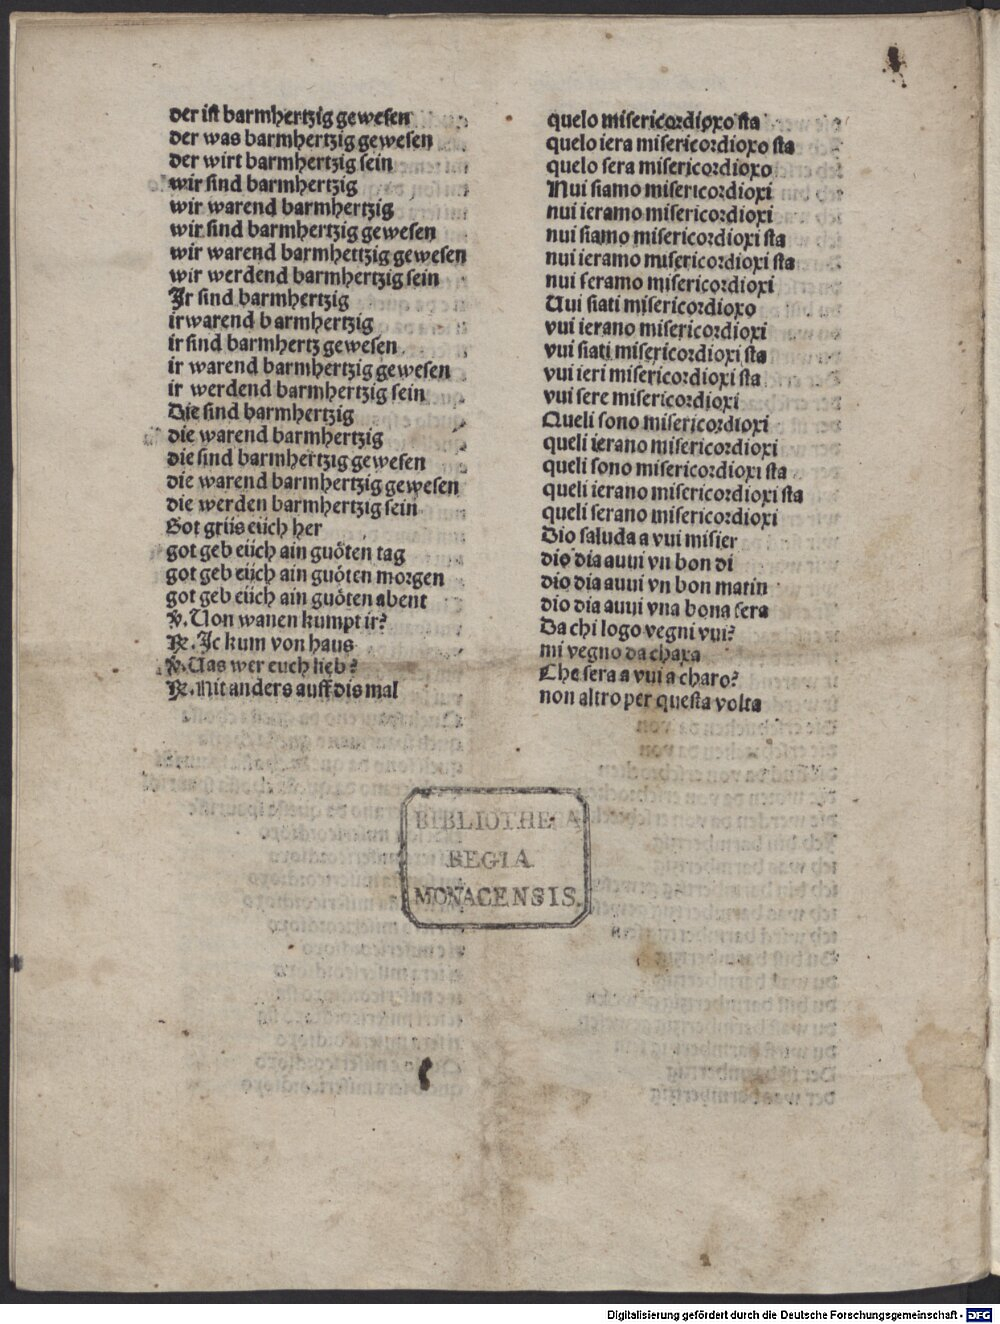 der ist barmhertzig gewesen
der was barmhertzig gewesen
der wirt barmhertzig sein
wir sind barmhertzig
wir warend barmhertzig
wir sind barmhertzig gewesen
wir warend barmhettzig gewesen
wir werdend barmhertzig sein
Ir sind barmhertzig
irwarend barmhertzig
ir sind barmhertz gewesen
ir warend barmhertzig gewesen
ir werdend barmhertzig sein
Die sind barmhertzig
die warend barmhertzig
die sind barmhertzig gewesen
die warend barmhertzig gewesen
die werden barmhertzig sein
Got grüs eüch her
got geb eüch ain guöten tag
got geb eüch ain guöten morgen
got geb eüch ain guöten abent
℣. Uon wanen kumpt ir?
℟. Ic kum von haus
℣. Uas wer euch lieb?
℟. Nit anders auff dis mal
quelo misericordioxo sta
quelo iera misericordioxo sta
quelo sera misericordioxo
Nui siamo misericordioxi
nui ieramo misericordioxi
nui siamo misericordioxi sta
nui ieramo misericordioxi sta
nui seramo misericordioxi
Uui siati misericordioxo
vui ierano misericordioxi
vui siati misericordioxi sta
vui ieri misericordioxi sta
vui sere misericordioxi
Queli sono misericordioxi
queli ierano misericordioxi
queli sono misericordioxi sta
queli ierano misericordioxi sta
queli serano misericordioxi
Dio saluda a vui misier
dio dia auui vn bon di
dio dia auui vn bon matin
dio dia auui vna bona sera
Da chi logo vegni vui?
mi vegno da chaxa
Che sera a vui a charo?
non altro per questa volta
BIBLIOTHECA
REGIA
MONACENSIS.
Digitalisierung gefördert durch die Deutsche Forschungsgemeinschaft - DFG